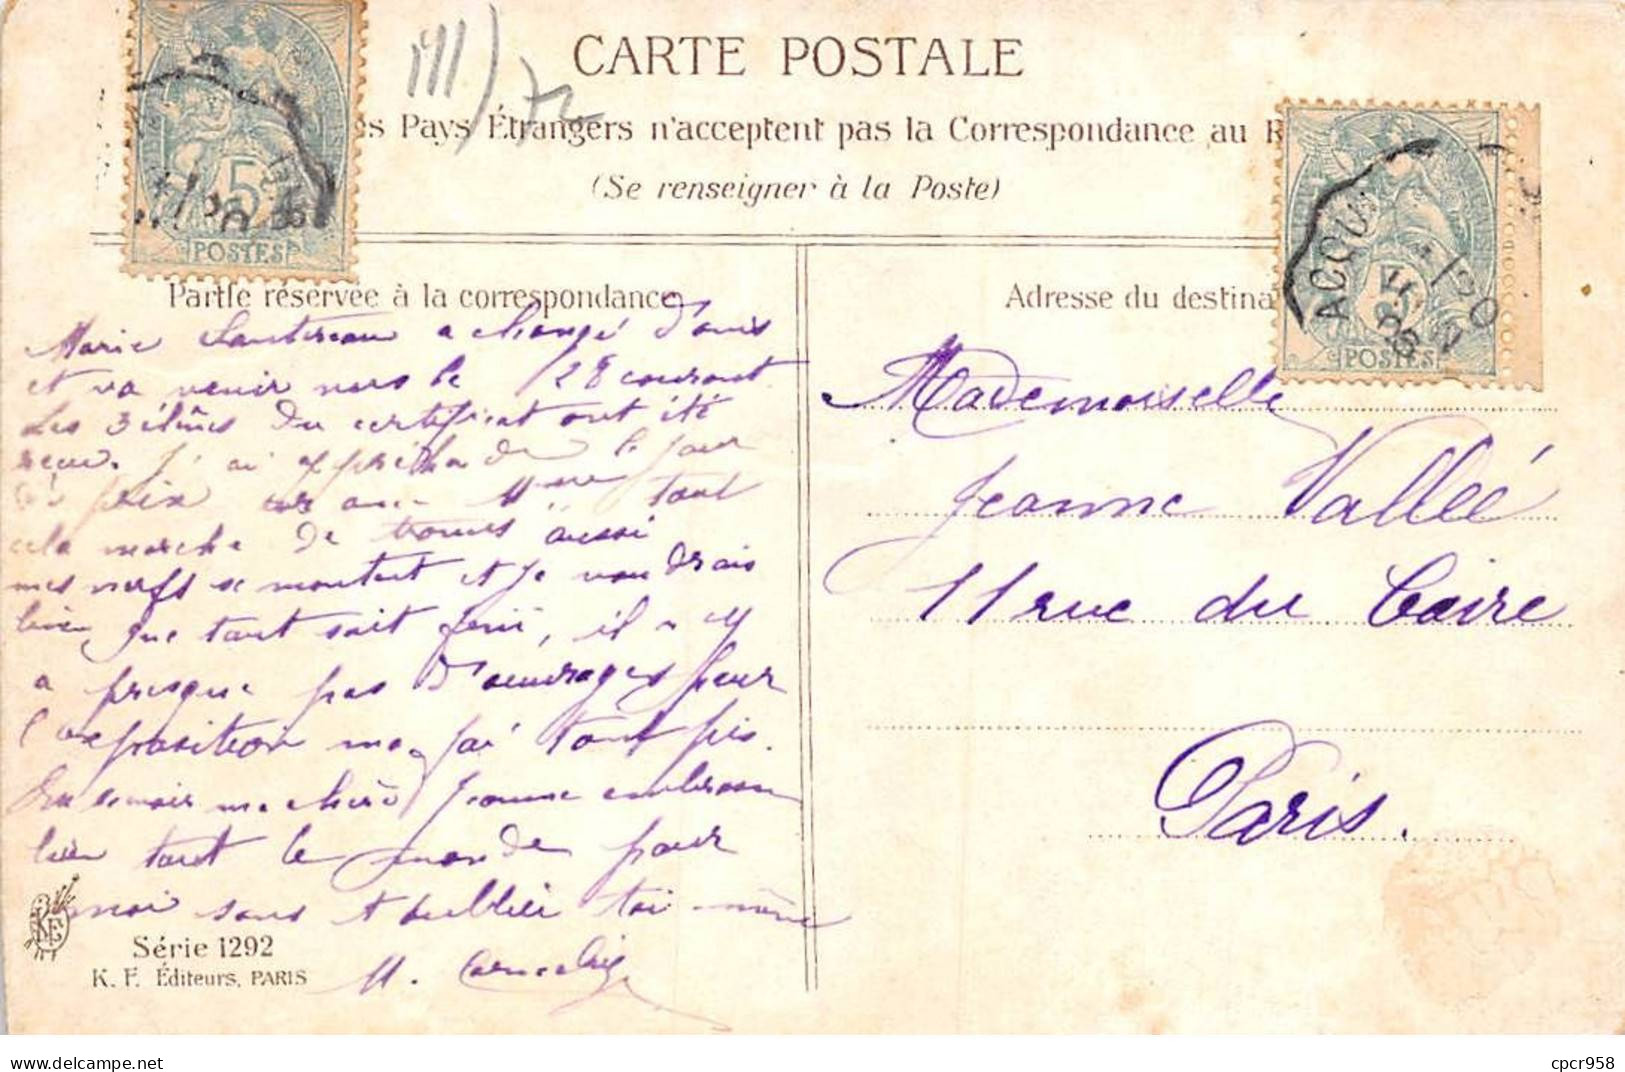 CARTE POSTALE
s Pays Étrangers n'acceptent pas la Correspondance au R
(Se renseigner à la Poste)
5
POSTES
ACQU
5
POSTES
Partie réservée à la correspondance
Adresse du destina
Marie a changé d'avis
et va venir vers le 28 courant
Les 3 élèves du certificat ont été
reçu. J'ai le jour
prix Mme tout
cela marche de travers aussi
mes nerfs se montent et je voudrais
bien que tout soit fini, il n y
a presque pas d'ouvrages pour
l'exposition ma foi tant pis.
Au revoir ma chère Jeanne embrasse
bien tout le monde pour
moi sans t'oublier toi-même
M.
Mademoiselle
Jeanne Vallée
11 rue du Caire
Paris.
KF
Série 1292
K. F. Éditeurs, PARIS
delcampe.net
cpcr958